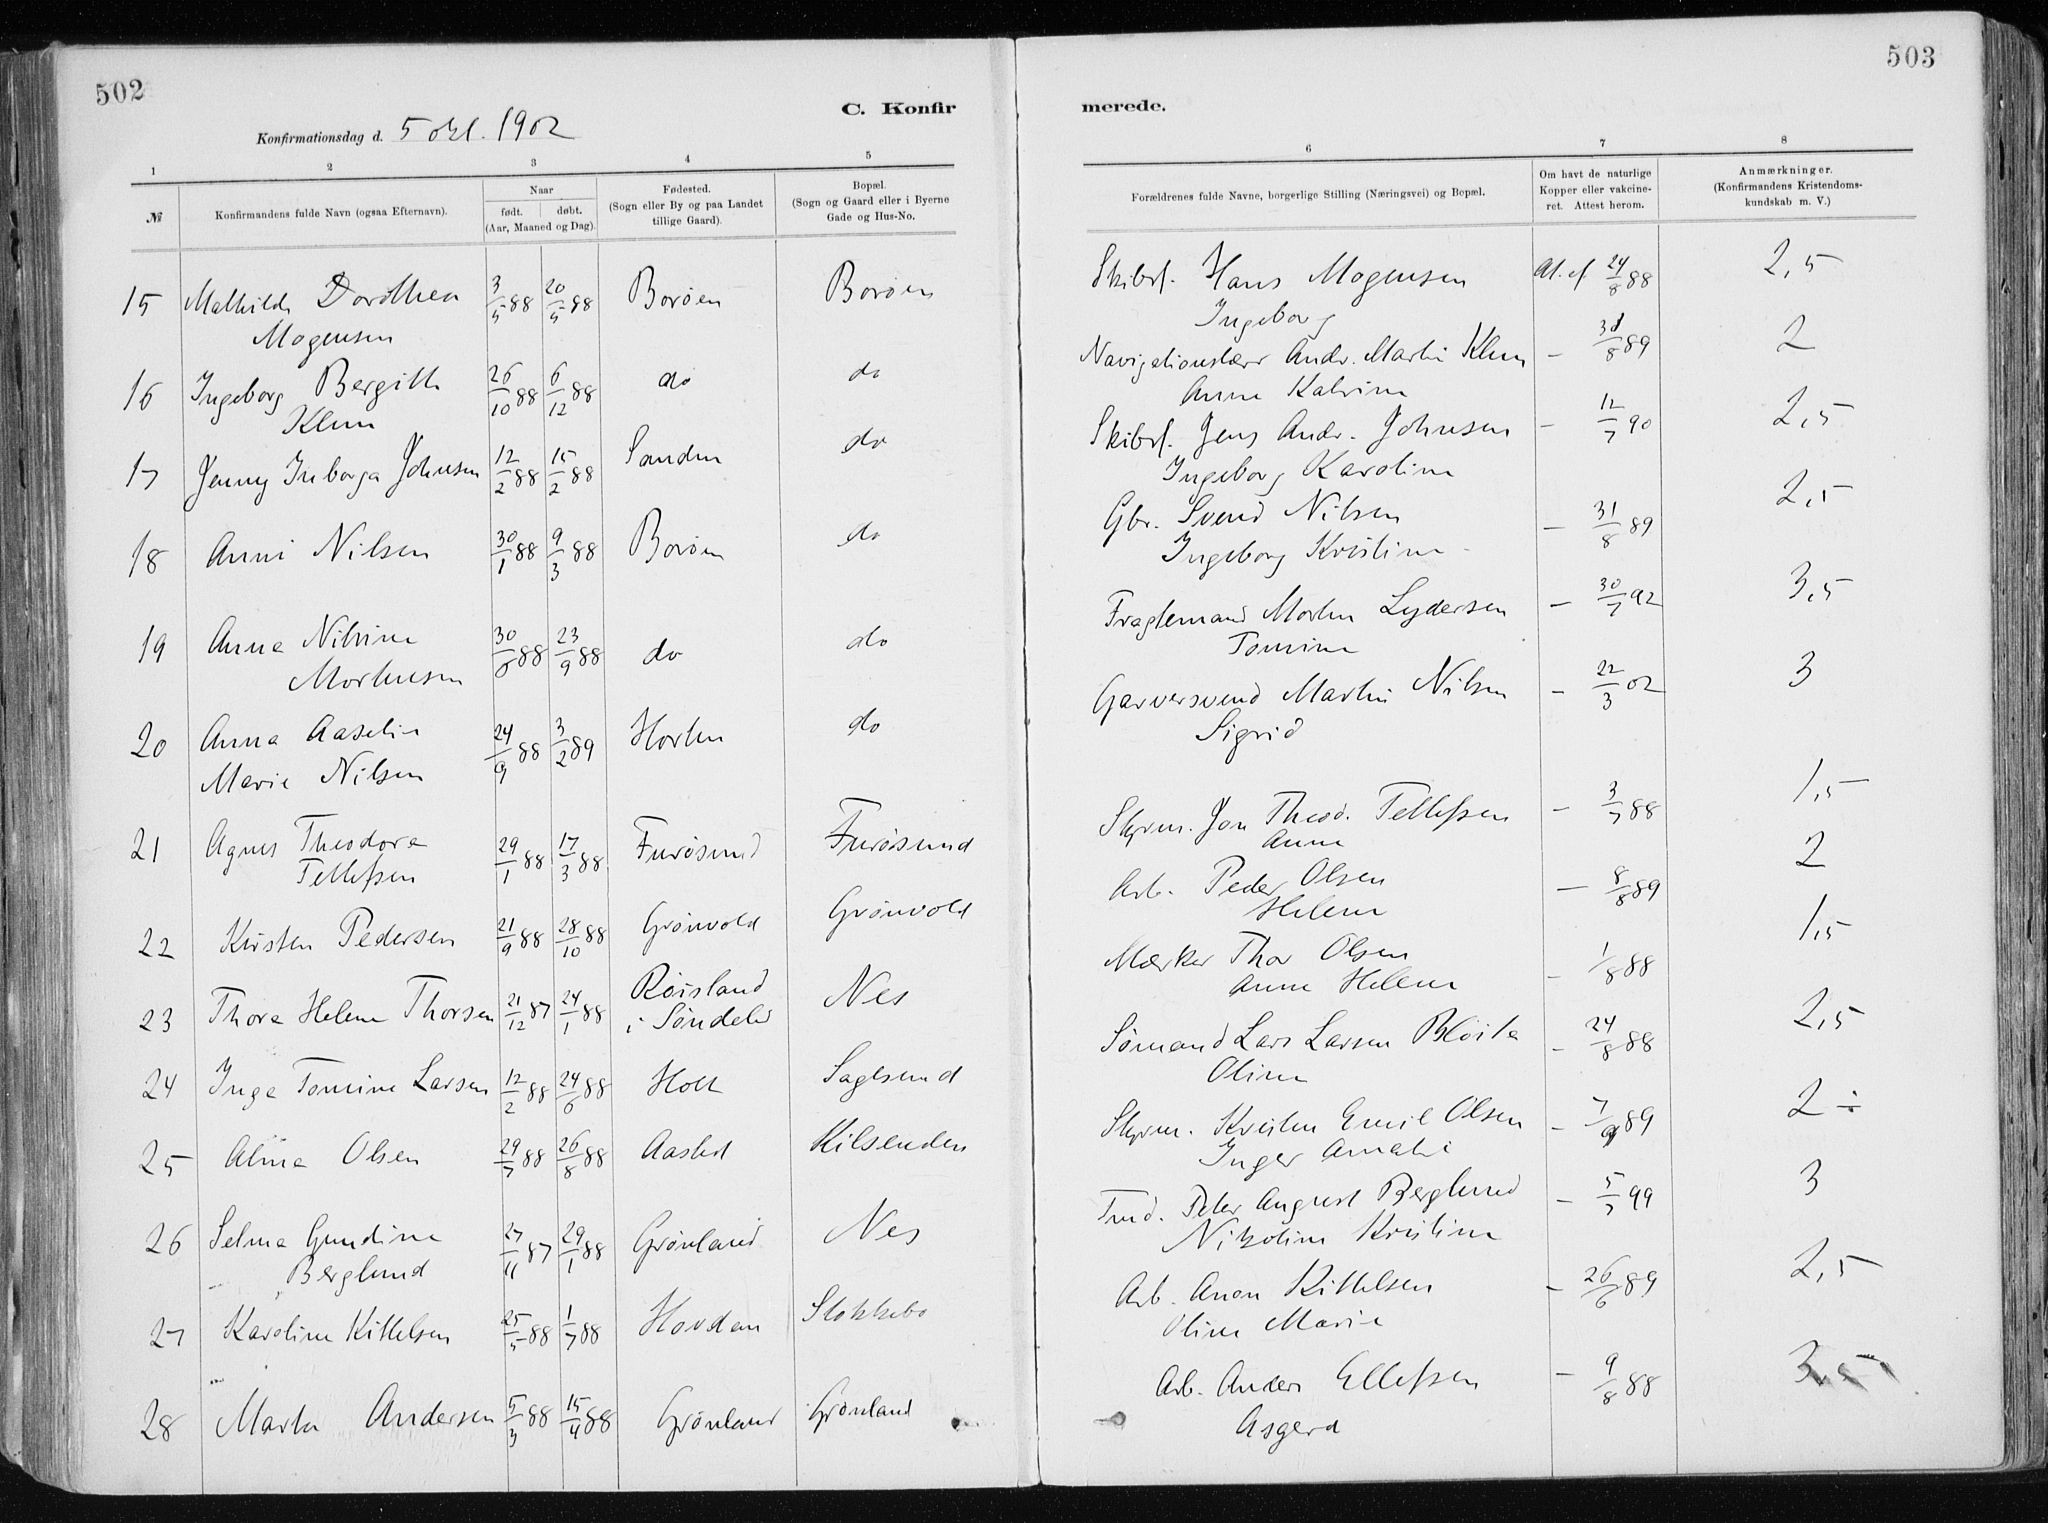 502
C. Konfir
Konfirmationsdag d. 5 okt. 1902
1 2 3 4 5
№
Konfirmandens fulde Navn (ogsaa Efternavn).
Naar
født. døbt.
(Aar, Maaned og Dag).
Fødested.
(Sogn eller By og paa Landet
tillige Gaard).
Bopæl.
(Sogn og Gaard eller i Byerne
Gade og Hus-No.
15 Mathilde Dorothea 3/5 88 20/5 88 Borøen Borøen
Mogensen
16 Ingeborg Bergitte 26/10 88 6/12 88 do do
Klem
17 Jenny Inborga Johnsen 12/2 88 15/2 88 Sanden do
18 Anni Nilsen 30/1 88 9/3 88 Borøen do
19 Anna Nilsine 30/6 88 23/9 88 do do
Mortensen
20 Anna Aaselie 24/9 88 3/2 89 Horten do
Marie Nilsen
21 Agnes Theodora 29/1 88 17/3 88 Furøsund Furøsund
Tellefsen
22 Kirsten Pedersen 21/9 88 28/10 88 Grønvold Grønvold
23 Thora Helene Thorsen 21/12 87 24/1 88 Røisland
i Søndeled Nes
24 Inga Tomine Larsen 12/2 88 24/6 88 Holt Saglsund
25 Alma Olsen 29/7 88 26/8 88 Aasted Kilsenden
26 Selma Gundine 27/11 87 29/1 88 Grønland Nes
Berglund
27 Karoline Kittelsen 25/5 88 1/7 88 Hovdan Stokkebo
28 Marta Andersen 5/3 88 15/4 88 Grønland Grønland
503
merede.
6 7 8
Forældrenes fulde Navne, borgerlige Stilling (Næringsvei) og Bopæl.
Om havt de naturlige
Kopper eller vakcine-
ret. Attest herom.
Anmærkninger.
(Konfirmandens Kristendoms-
kundskab m. V.)
Skibsf. Hans Mogensen At. af 24/8 88 2,5
Ingeborg
Navigationslærer Andr. Martin Klem - 31/8 89 2
Anne Katrine
Skibsf. Jens Andr. Johnsen - 12/7 90 2,5
Ingeborg Karoline
Gbr. Svend Nilsen - 31/8 89 2,5
Ingeborg Kristine
Fragtemand Morten Lydersen - 30/7 92 3,5
Tomine
Garversvend Martin Nilsen - 22/3 02 3
Sigrid
Styrm. Jon Theod. Tellefsen - 3/7 88 1,5
Anne
Arb. Peder Olsen - 8/8 89 2
Helene
Mærker Thor Olsen - 1/8 88 1,5
Anne Helene
Sømand Lars Larsen - 24/8 88 2,5
Oline
Styrm. Kristen Emil Olsen - 7/9 89 2 ÷
Inger Amalie
Tmd. Peter August Berglund - 5/7 99 3
Nikoline Kristine
Arb. Anon Kittelsen - 26/6 89 2,5
Oline Marie
Arb. Anders Ellefsen - 9/8 88 3,5
Asgerd